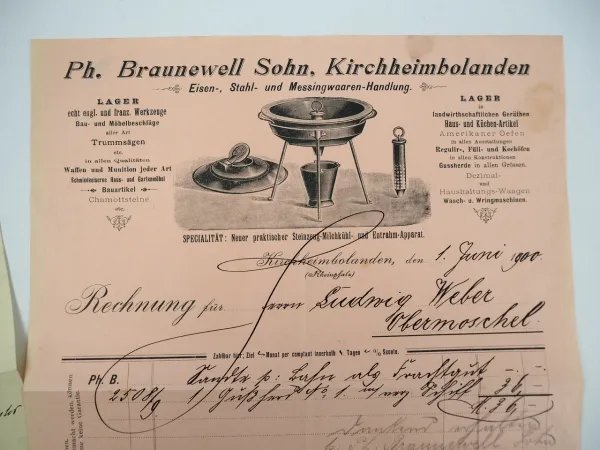 Ph. Braunewell Sohn, Kirchheimbolanden
Eisen-, Stahl- und Messingwaaren-Handlung.
LAGER
echt engl. und franz. Werkzeuge
Bau- und Möbelbeschläge
aller Art
Trummsägen
etc.
in allen Qualitäten
Waffen und Munition jeder Art
Schmiedeeiserne Haus- und Gartenmöbel
Bauartikel
Chamottsteine
etc.
LAGER
in
landwirthschaftlichen Geräthen
Haus- und Küchen-Artikel
Amerikaner Oefen
in allen Ausstattungen
Regulir-, Füll- und Kochöfen
in allen Konstruktionen
Gussherde in allen Grössen.
Dezimal-
und
Haushaltungs-Waagen
Wasch- u. Wringmaschinen.
SPECIALITÄT: Neuer praktischer Steinzeug-Milchkühl- und Entrahm-Apparat.
Kirchheimbolanden, den 1. Juni 1900
(Rheinpfalz)
Rechnung für Herrn Ludwig Weber
Obermoschel
Zahlbar hier; Ziel Monat per comptant innerhalb Tagen % Sconto.
Ph. B.
Sandte p. Bahn als Frachtgut
2508/9 1 Gußherd No 1 36 -
M. 36 -
Dankend erhalten
Ph. Braunewell Sohn